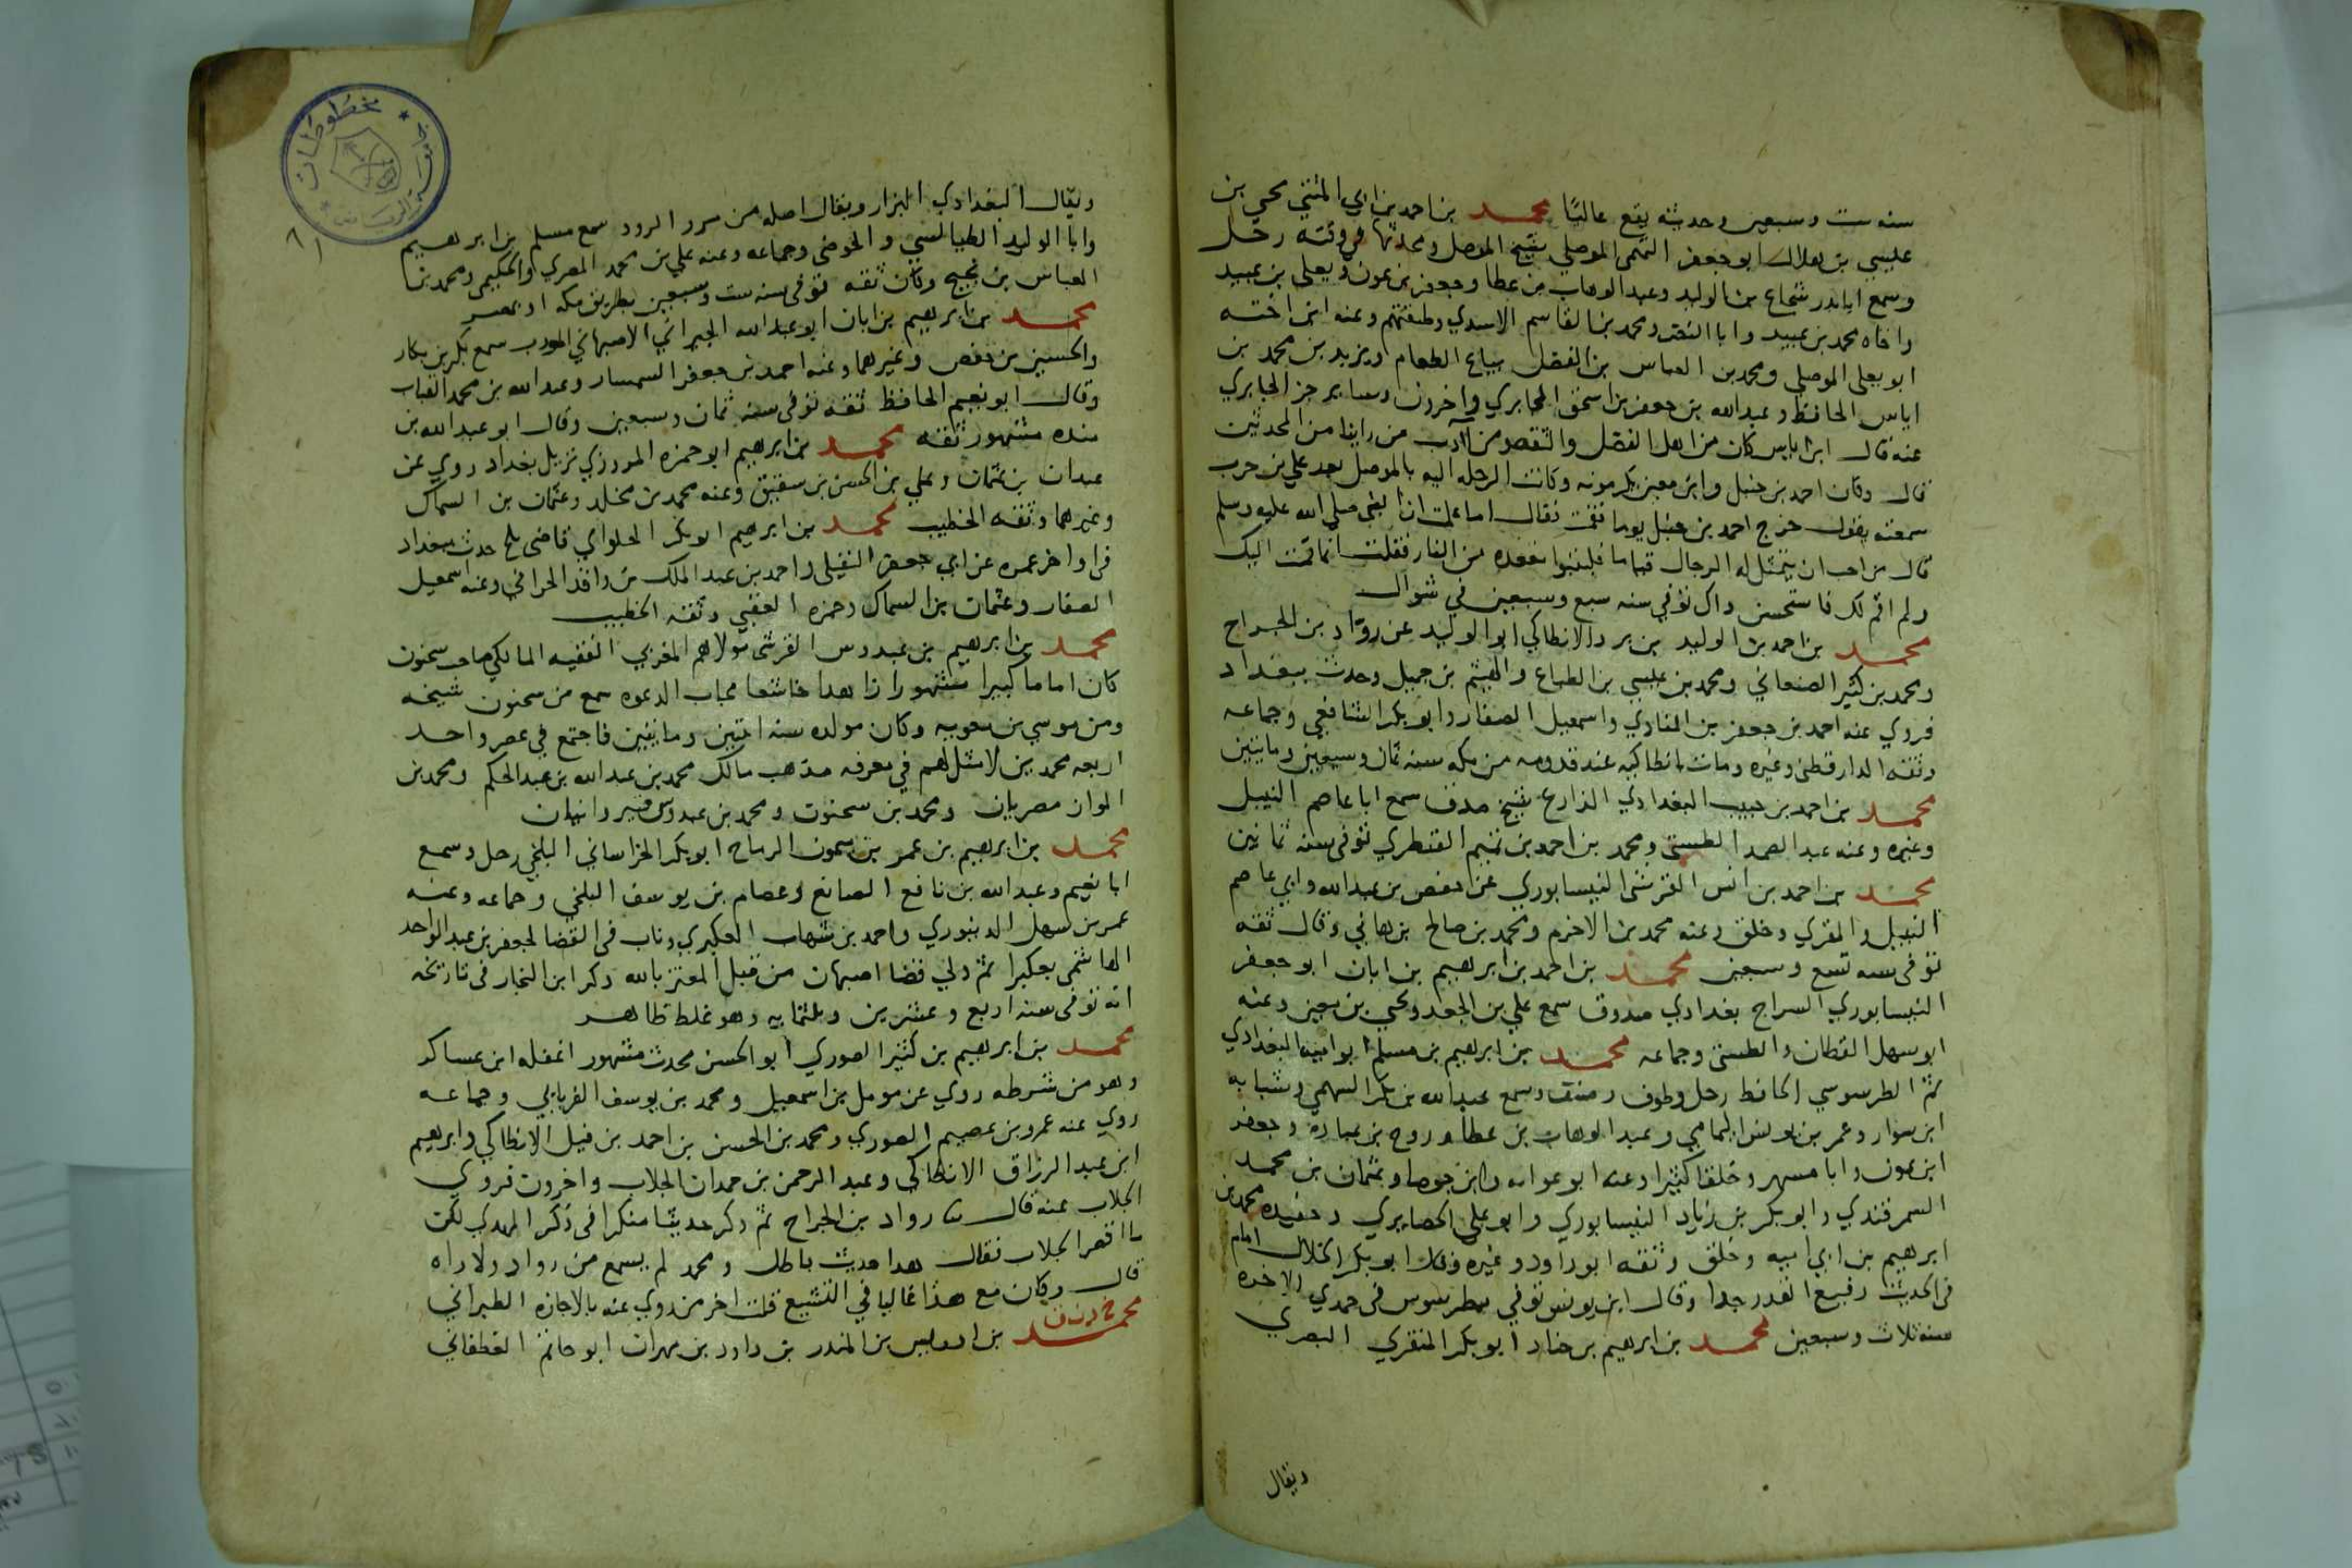 سنه ست وسبعين وحديثه يقع عاليا محمد بن احمد بن ابي المثني يحيي بن
عليسي بن هلال ابو جعفر التميمي الموصلي شيخ الموصل ومحدثها في وقته رحل
وسمع ابا بدر شجاع بن الوليد وعبد الوهاب بن عطا وجعفر بن عون ويعلي بن عبيد
واخاه محمد بن عبيد وابا النضر ومحمد بن القاسم الاسدي وطبقتهم وعنه ابن اخته
ابو يعلي الموصلي ومحمد بن العباس بن الفضل بياع الطعام ويزيد بن محمد بن
اياس الحافظ وعبد الله بن جعفر بن اسحق الجابري واخرون وسايرجز الجابري
عنه قال ابن اياس كان من اهل الفضل والتقصومن آدب من راينا من المحدثين
قال وكان احمد بن حنبل وابن معين يكرمونه وكانت الرحله اليه بالموصل بعد علي بن حرب
سمعته يقول خرج احمد بن حنبل يوما فقمت فقال اما علمت ان النبي صلي الله عليه وسلم
قال من احب ان يتمثل له الرجال قياما فليتبوا مقعده من النار فقلت انما قمت اليك
ولم اقم لك فاستحسن ذاك توفي سنه سبع وسبعين في شوال
محمد بن احمد بن الوليد بن برد الانطاكي ابو الوليد عن رواد بن الجراح
ومحمد بن كثير الصنعاني ومحمد بن عليسي بن الطباع والهيثم بن جميل وحدث ببغداد
فروي عنه احمد بن جعفر بن المنادي واسمعيل الصفار وابو بكر الشافعي وجماعه
وثقه الدارقطني وغيره ومات بانطاكيه عند قدومه من مكه سنه ثمان وسبعين ومايتين
محمد بن احمد بن حبيب البغدادي الذارع شيخ صدق سمع ابا عاصم النبيل
وغيره وعنه عبد الصمد الطستي ومحمد بن احمد بن تميم القنطري توفي سنه ثمانين
محمد بن احمد بن انس القرشي النيسابوري عن حفص بن عبد الله وابي عاصم
النبيل والمقري وخلق وعنه محمد بن الاخرم ومحمد بن صالح بن هاني وقال ثقه
توفي سنه تسع وسبعين محمد بن احمد بن ابرهيم بن ابان ابو جعفر
النيسابوري السراج بغدادي صدوق سمع علي بن الجعد ويحيي بن معين وعنه
ابو سهل القطان والطستي وجماعه محمد بن ابرهيم بن مسلم ابو اميه البغدادي
ثم الطرسوسي الحافظ رحل وطوف وصنف وسمع عبد الله بن بكر السهمي وشبابه
ابن سوار وعمر بن يونس اليمامي وعبد الوهاب بن عطا وروح بن عباده وجعفر
ابن عون وابا مسهر وخلقا كثيرا وعنه ابو عوانه وابن جوصا وعثمان بن محمد
السمرقندي وابو بكر بن زياد النيسابوري وابو علي الحصايري وحفيده محمد بن
ابرهيم بن ابي اميه وخلق وثقه ابو داود وغيره وقال ابو بكر الخلال امام
في الحديث رفيع القدر جدا وقال ابن يونس توفي بطرسوس في جمدي الاخره
سنه ثلاث وسبعين محمد بن ابرهيم بن حناد ابو بكر المنقري البصري
ويقال
مخطوطات
ويقال البغدادي البزار ويقال اصله من مرو الرود سمع مسلم بن ابرهيم
وابا الوليد الطيالسي والحوضي وجماعه وعنه علي بن محمد المصري والحكيمي ومحمد بن
العباس بن نجيح وكان ثقه توفي سنه ست وسبعين بطريق مكه او بمصر
محمد بن ابرهيم بن ابان ابو عبد الله الجيراني الاصبهاني المودب سمع بكر بن بكار
والحسين بن حفص وغيرهما وعنه احمد بن جعفر السمسار وعبد الله بن محمد القباب
وقال ابو نعيم الحافظ ثقه توفي سنه ثمان وسبعين وقال ابو عبد الله بن
منده مشهور ثقه محمد بن ابرهيم ابو حمزه المروزي نزيل بغداد روي عن
عبدان بن عثمان وعلي بن الحسن بن شقيق وعنه محمد بن مخلد وعثمان بن السماك
وغيرهما وثقه الخطيب محمد بن ابرهيم ابو بكر الحلواي قاضي بلخ حدث ببغداد
في اواخر عمره عن ابي جعفر النفيلي واحمد بن عبد الملك بن واقد الحراني وعنه اسمعيل
الصفار وعثمان بن السماك وحمزه العقبي وثقه الخطيب
محمد بن ابرهيم بن عبدوس القرشي مولاهم المغربي الفقيه المالكي صاحب سحنون
كان اماما كبيرا مشهورا زاهدا خاشعا مجاب الدعوه سمع من سحنون شيخه
ومن موسي بن معويه وكان مولده سنه اثنين ومايتين فاجتمع في عصر واحد
اربعه محمد بن لا مثل لهم في معرفه مذهب مالك محمد بن عبد الله بن عبد الحكم ومحمد بن
المواز مصريان ومحمد بن سحنون ومحمد بن عبدوس قيروانيان
محمد بن ابرهيم بن عمر بن ميمون الرماح ابو بكر الخراساني البلخي رحل وسمع
ابا نعيم وعبد الله بن نافع الصايغ وعصام بن يوسف البلخي وجماعه وعنه
عمر بن سهل الدينوري واحمد بن شهاب العكبري وناب في القضا لجعفر بن عبد الواحد
الهاشمي بعكبرا ثم ولي قضا اصبهان من قبل المعتز بالله وذكر ابن النجار في تاريخه
انه توفي سنه اربع وعشرين وثلثمايه وهو غلط ظاهر
محمد بن ابرهيم بن كثير الصوري ابو الحسن محدث مشهور اغفله ابن عساكر
وهو من شرطه روي عن مومل بن اسمعيل ومحمد بن يوسف الفريابي وجماعه
روي عنه عمرو بن عصيم الصوري ومحمد بن الحسن بن احمد بن فيل الانطاكي وابرهيم
ابن عبد الرزاق الانطاكي وعبد الرحمن بن حمدان الجلاب واخرون فروي
الجلاب عنه قال ثنا رواد بن الجراح ثم ذكر حديثا منكرا في ذكر المهدي لكن
الجلاب فقال هذا حديث باطل ومحمد لم يسمع من رواد ولا راه
قال وكان مع هذا غاليا في التشيع قلت اخر من روي عنه بالاجازه الطبراني
محمد بن ادريس بن المنذر بن داود بن مهران ابو حاتم الغطفاني